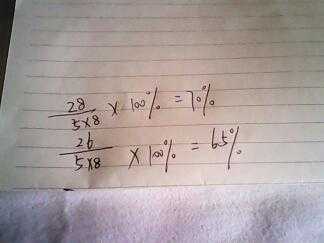 28/5×8 × 100% = 70%
26/5×8 × 100% = 65%